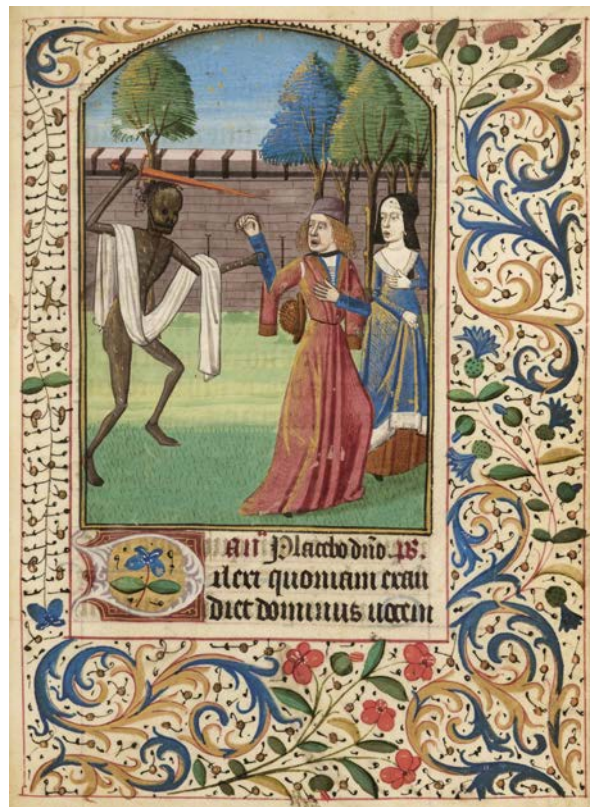 añ Placebo dño. ps.
Dilexi quoniam exau
diet dominus uocem